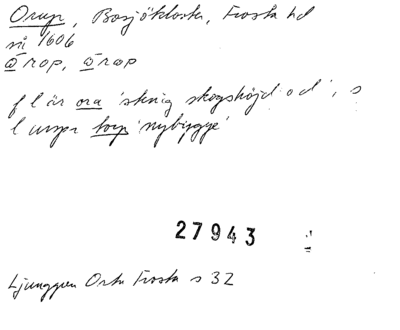 Orup, Bosjökloster, Frosta hd
nu 1606
ōrop, ōrop
f l är ora 'stenig skogshöjd o d', s
l urspr torp 'nybygge'
27943
Ljunggren Ortn Frosta s 32